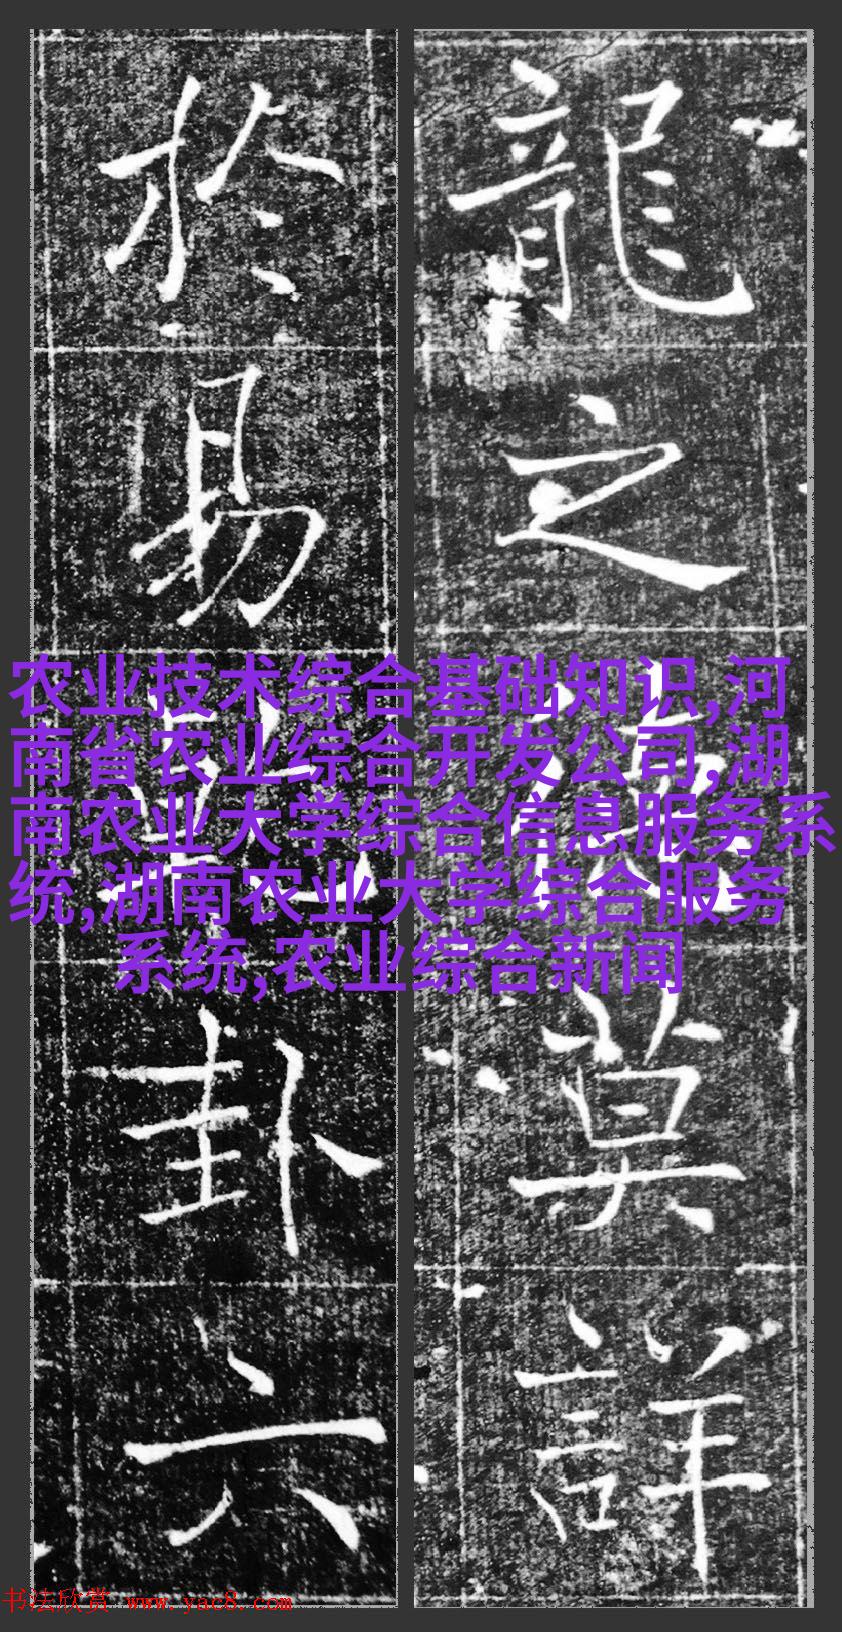 龍之莫詳
於易卦六
农业技术综合基础知识,河
南省农业综合开发公司,湖
南农业大学综合信息服务系
统,湖南农业大学综合服务
系统,农业综合新闻
书法欣赏 www.yac8.com